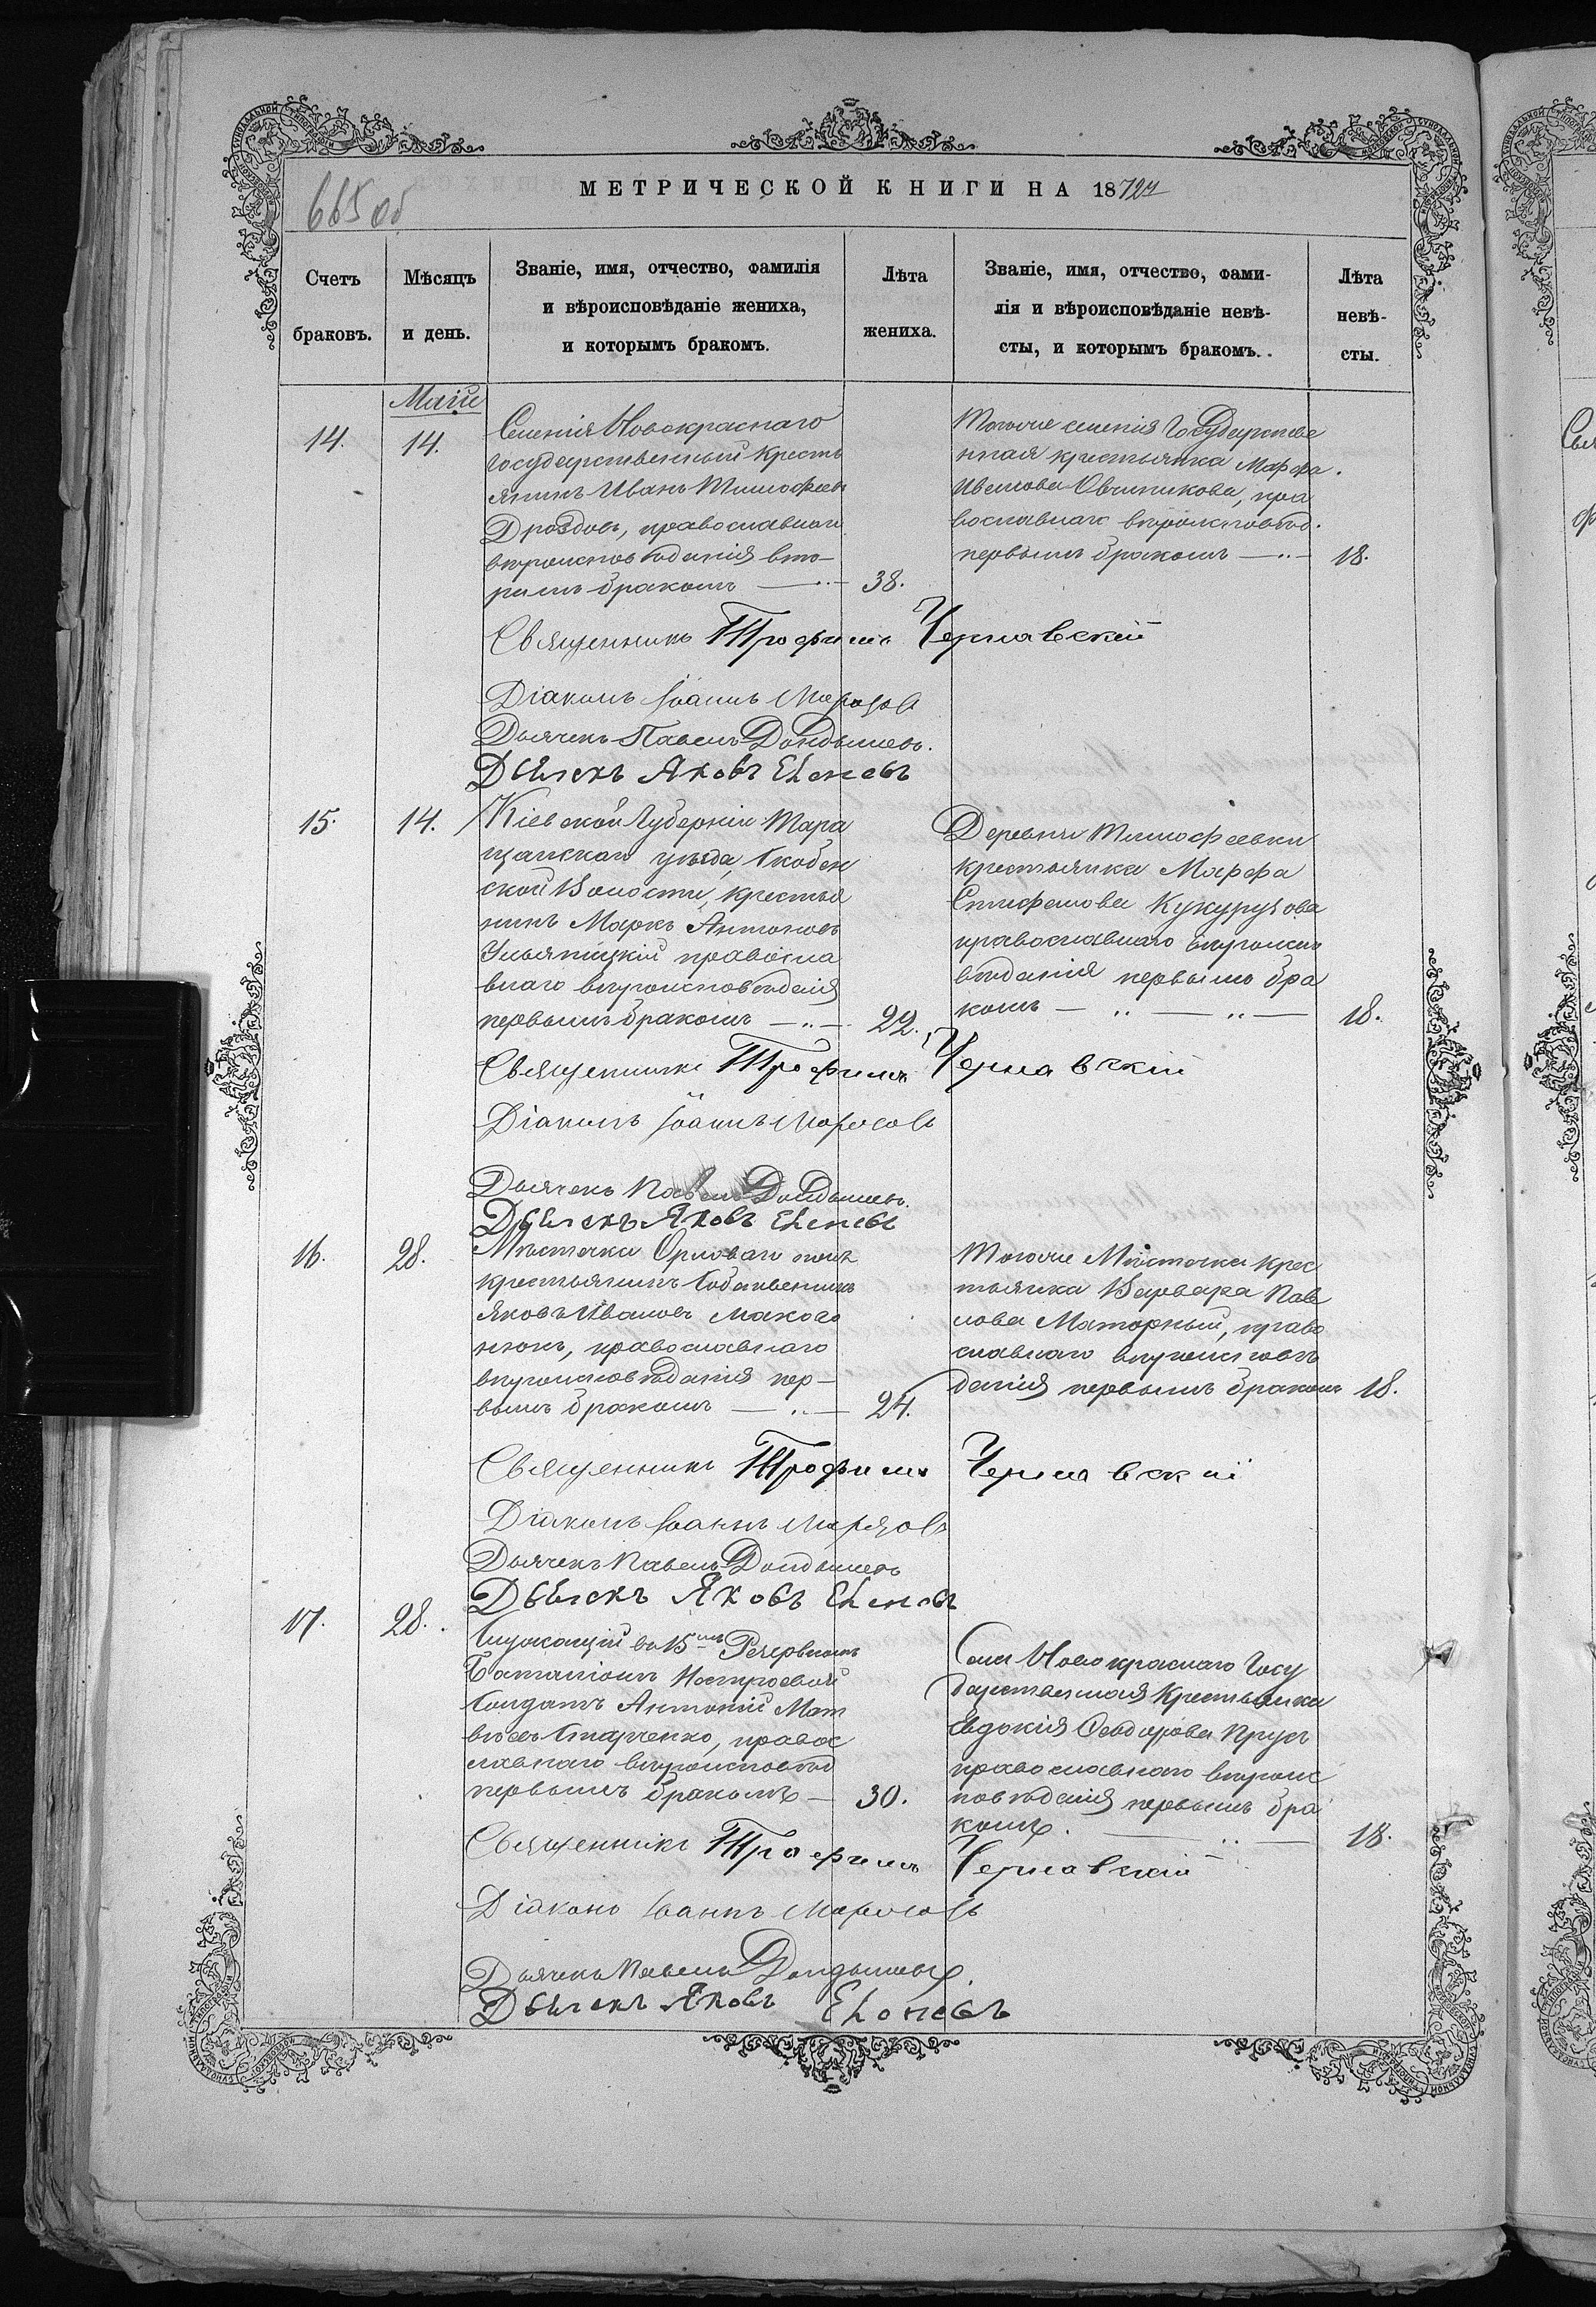 665 об
МЕТРИЧЕСКОЙ КНИГИ НА 1872й
Счетъ браковъ.
Мѣсяцъ и день.
Званіе, имя, отчество, фамилія
и вѣроисповѣданіе жениха,
и которымъ бракомъ.
Лѣта жениха.
Званіе, имя, отчество, фами-
лія и вѣроисповѣданіе невѣ-
сты, и которымъ бракомъ.
Лѣта невѣ-
сты.
Май
14.
14.
Селенія Новокраснаго
государственный кресть
янинъ Иванъ Тимофеевъ
Дроздовъ, православнаго
вѣроисповѣданія вто-
рымъ бракомъ
38.
Тогоже селенія Государстве
нная крестьянка Марфа
Иванова Овчиникова, пра
вославнаго вѣроисповѣд.
первымъ бракомъ
18.
Священникъ Трофимъ Чернавскій
Діаконъ Іоаннъ Морозовъ
Дьячекъ Павелъ
Дьячекъ Яковъ
15.
14.
Кіевской Губерніи Тара
щанскаго уѣзда,
ской Волости, крестья
нинъ Маркъ Антоновъ
православ
наго вѣроисповѣданія
первымъ бракомъ
22.
Деревни Тимофеевки
крестьянка Марфа
Епифанова Кукурузова
православнаго вѣроиспо
вѣданія первымъ бра
комъ
18.
Священникъ Трофимъ Чернавскій
Діаконъ Іоаннъ Морозовъ
Дьячекъ Павелъ
Дьячекъ Яковъ
16.
28.
Мѣстечка
крестьянинъ собственникъ
Яковъ Ивановъ Макого
нюкъ, православнаго
вѣроисповѣданія пер-
вымъ бракомъ
24.
Тогоже Мѣстечка крес
тьянка Варвара Пав
лова Маторный, право
славнаго вѣроисповѣ
данія первымъ бракомъ
18.
Священникъ Трофимъ Чернавскій
Діаконъ Іоаннъ Морозовъ
Дьячекъ Павелъ
Дьячекъ Яковъ
17.
28.
Служащій въ 15мъ Резервномъ
Баталіонѣ Нестроевой
Солдатъ Антоній Мат
вѣевъ Старченко, правос
лавнаго вѣроисповѣд
первымъ бракомъ
30.
Села Новокраснаго Госу
дарственная Крестьянка
Евдокія Феодорова Прусъ
православнаго вѣроис
повѣданія первымъ бра
комъ.
18.
Священникъ Трофимъ Чернавскій
Діаконъ Іоаннъ Морозовъ
Дьячекъ Павелъ
Дьячекъ Яковъ